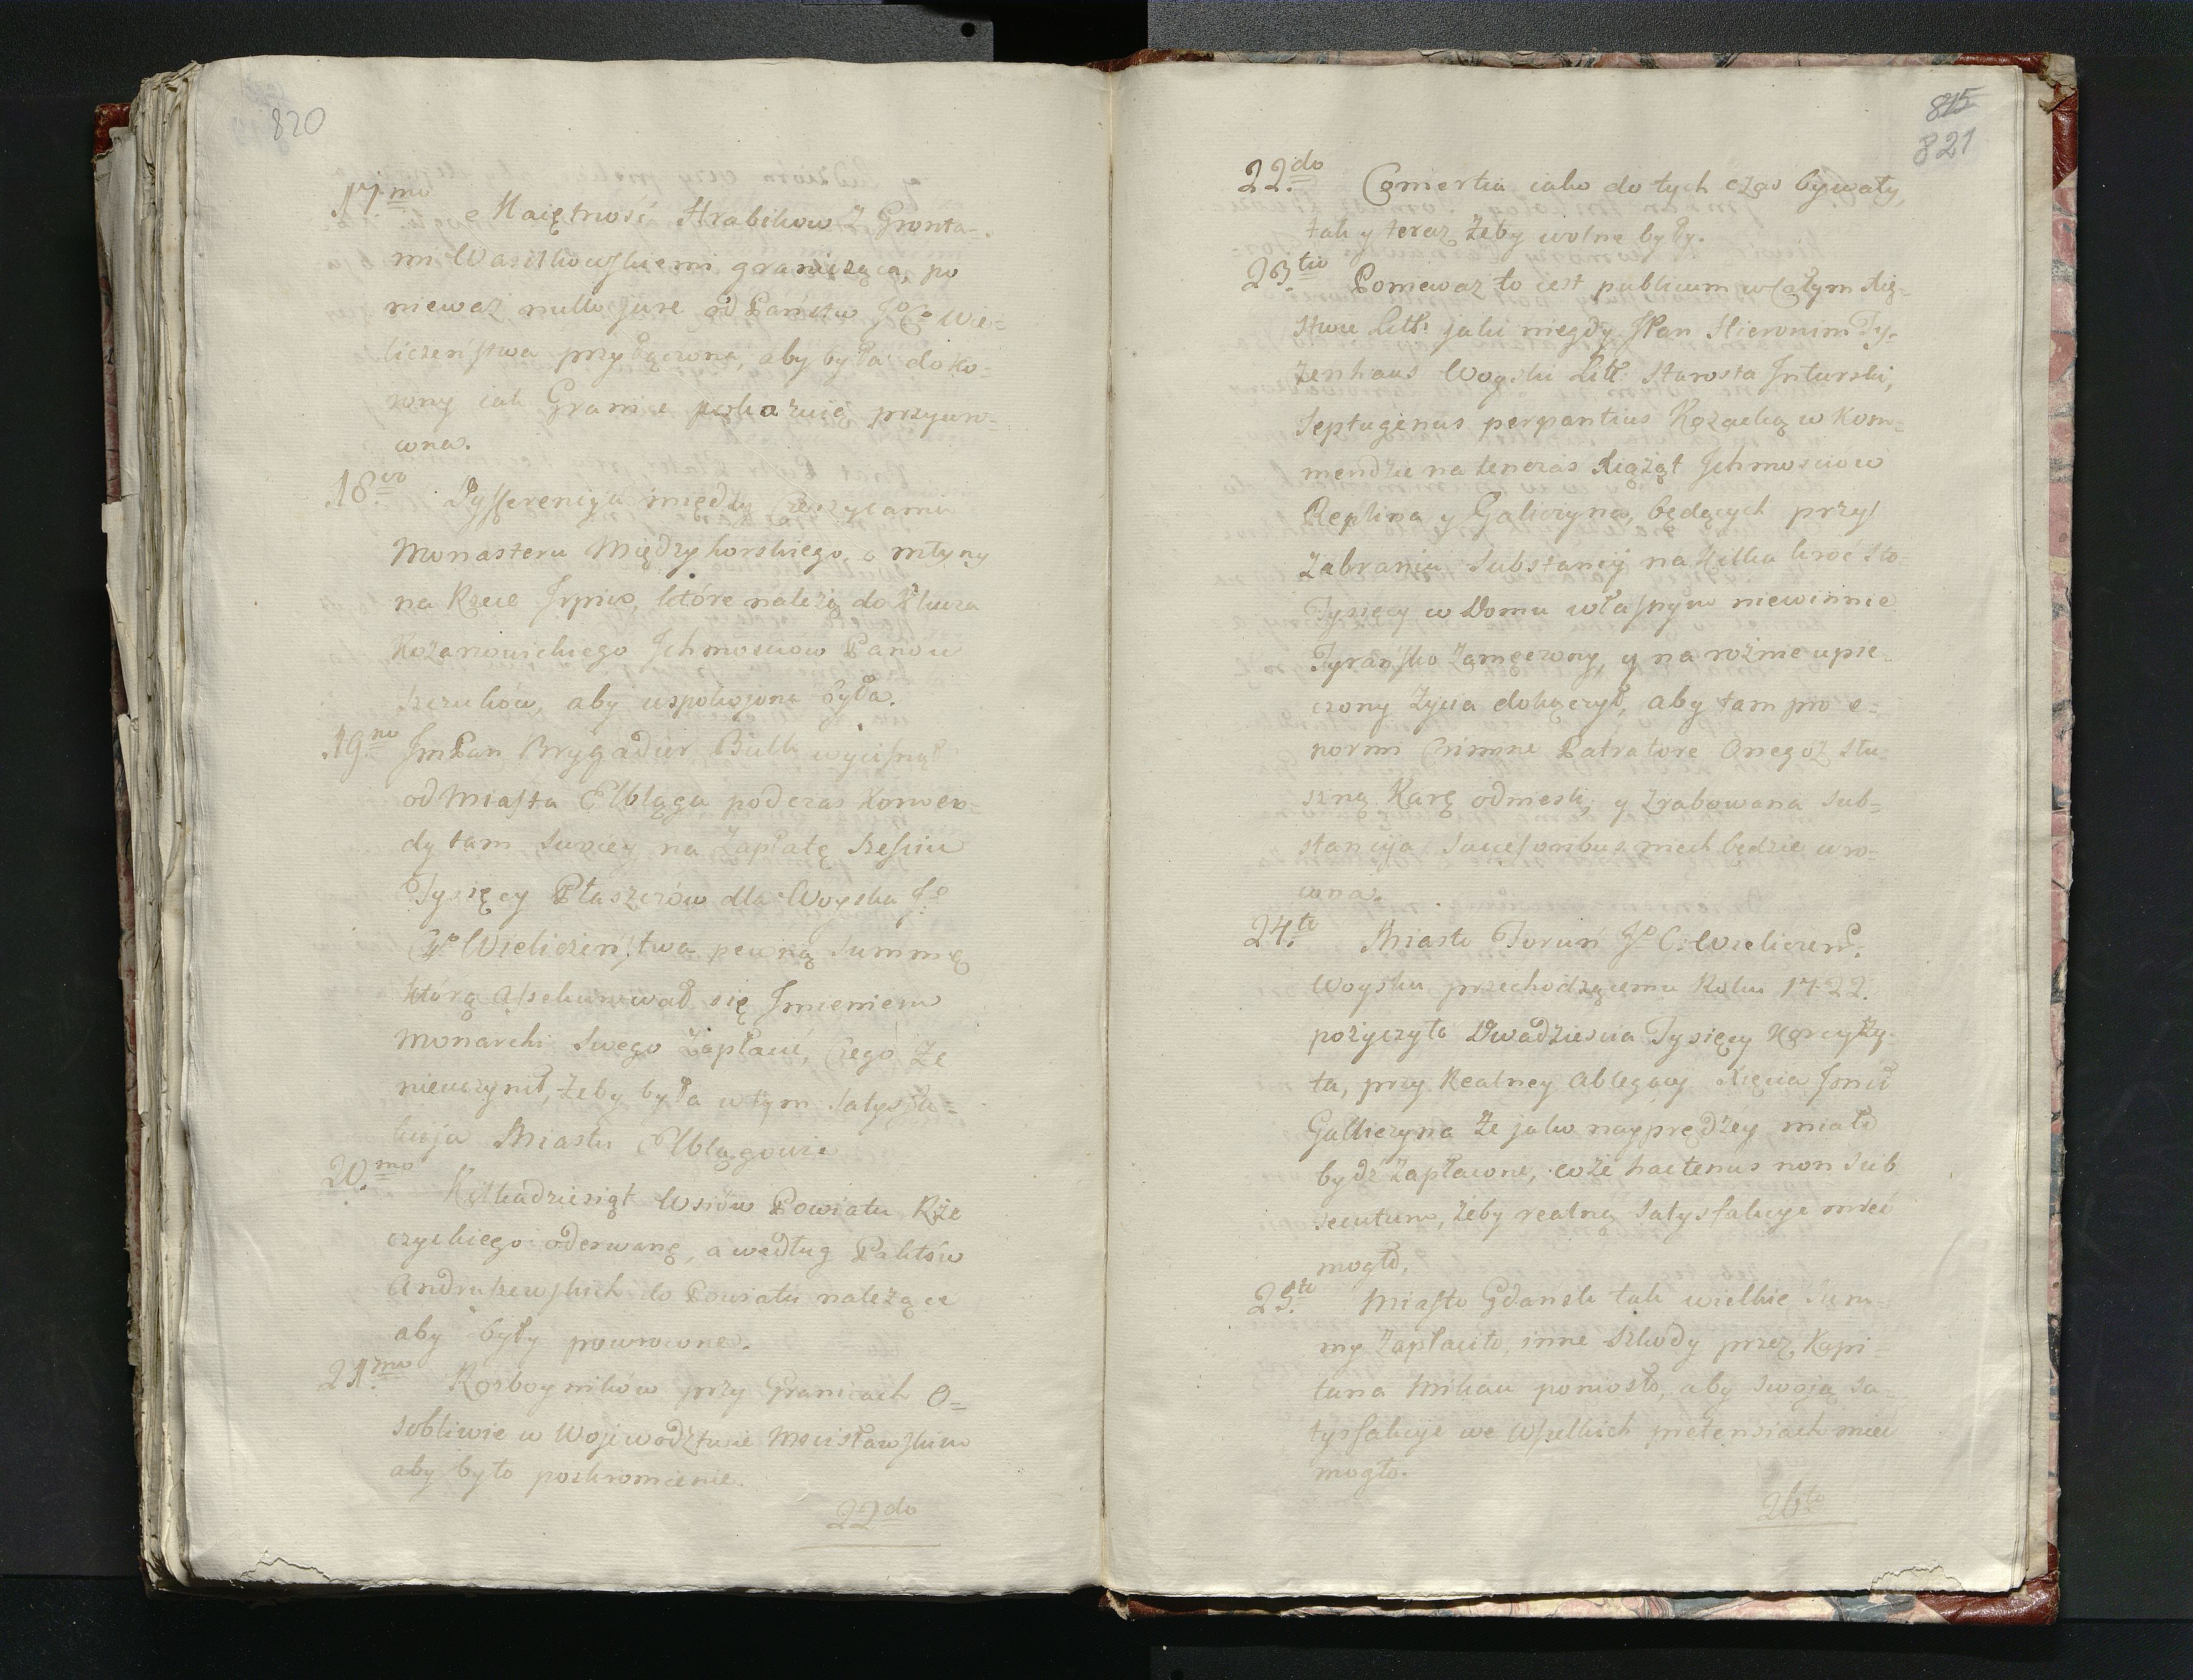 820
17mo
Maiętność Hrabikow Z Gronta-
mi Wasilkowskiemi granicząca, po
nieważ nullo jure od Państw Jo Co Wie=
liczeństwa przyłączona, aby była do Ko=
rony iak Granice pokazuią przywro=
cona.
18vo Dyfferencya między Czerncami
Monasteru Międzyhorskiego, o młyny
na Rzece Irpniu, które należą do Klucza
Kozarowickiego Ichmościow Panów
Szczuków, aby uspokojona była.
19no ImPan Brygadier Bulk wycisnął
od Miasta Elbląga podczas Komen=
dy tam swoiey na Zapłatę Sześciu
Tysięcy Płaszczów dla Woyska Jo
Co Wieliczeństwa pewną Summę
którą assekurował się Imieniem
Monarchi Swego Zapłacić, Czego że
nieuczynił, żeby była w tym Satysfa=
kcija Miastu Elblągowi
20mo
Kilkadziesiąt Wsiów Powiatu Rże
czyckiego oderwane, a według Paktów
Andruszewskich do Powiatu należące
aby były powrocone.
21mo Rozboyników przy Granicach O=
sobliwie w Wojewodztwie Mscisławskim
aby było poskromienie.
22do
815
821
22do Comertia iako do tych czas bywały,
tak y teraz żeby wolne były.
23tio Ponieważ to iest publicum w Całym Xię=
stwie Litt: jaki niegdy JPan Hieronim Ty=
zenhaus Woyski Litt: Starosta Inturski,
Septugenus per Kozacką w Kom=
mendzie na tenczas Xiążąt Ichmosciow
Repnina y Galiczyna, będących przy
Zabraniu Substancij na Kilka kroć sto
Tysięcy w Domu własnym niewinnie
Tyrańsko Zamęczony, y na rożnie upie=
czony życia dokączył, aby tam pro e=
normi Crimine Patratore Onegoż słu
szną Karę odniesli, y zrabowana Sub=
stancyja Sucessoribus niech będzie wro=
cona.
24to Miasto Toruń Jo C: Wieliczeń:
Woysku przechodzącemu Roku 1722.
pożyczyło Dwadziescia Tysięcy Korcy Ży
ta, przy Realney Ablegacij Xięcia Jmci
Galliczyna że jako nayprędzey miało
bydź Zapłacone, co że hactenus non sub
secutum, żeby realną Satysfakcyę mieć
mogło.
25to Miasto Gdansk tak wielkie Sum=
my Zapłaciło, inne Szkody przez Kapi=
tana poniosło, aby swoją Sa=
tysfakcyę we Wszelkich pretensiach mieć
mogło.
26to